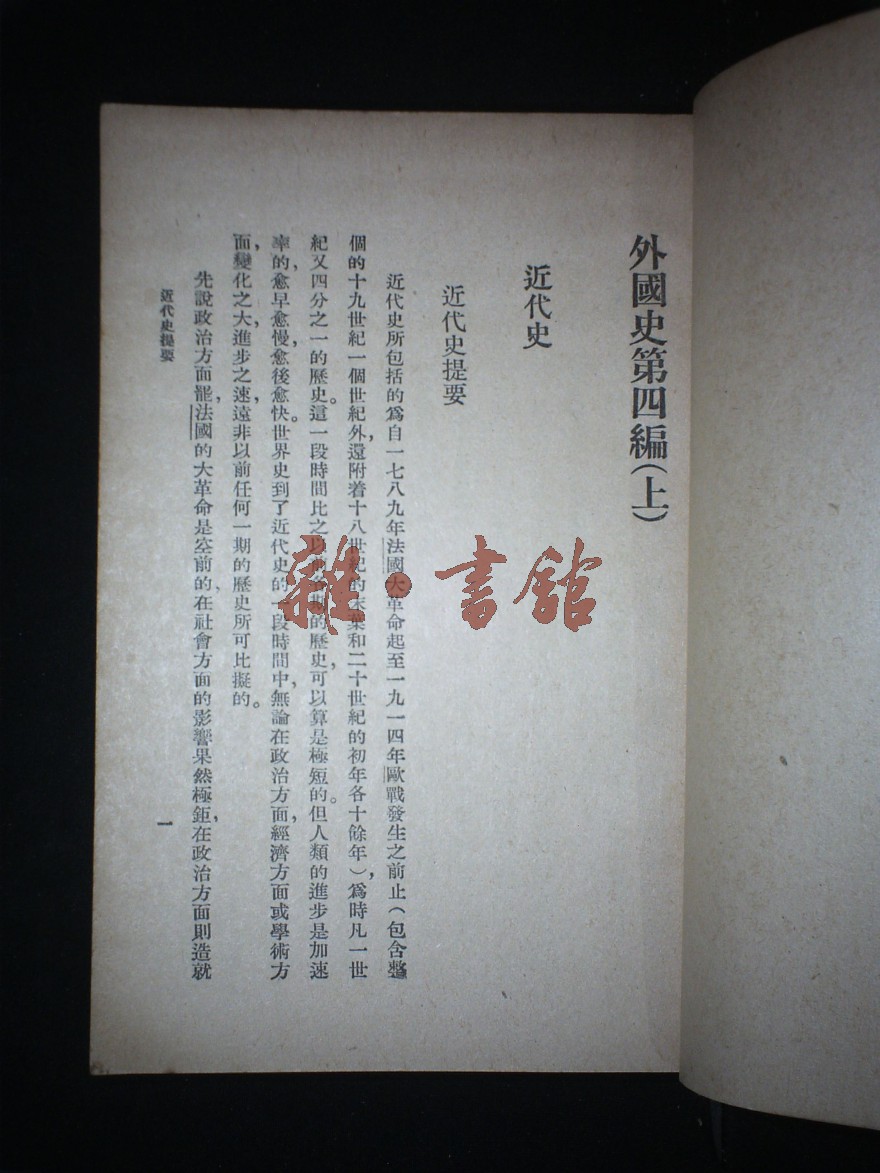 外國史第四編（上）
近代史
近代史提要
近代史所包括的爲自一七八九年法國大革命起至一九一四年歐戰發生之前止（包含整
個的十九世紀一個世紀外，還附着十八世紀的末葉和二十世紀的初年各十餘年），爲時凡一世
紀又四分之一的歷史。這一段時間比之以前各期的歷史，可以算是極短的。但人類的進步是加速
率的，愈早愈慢，愈後愈快。世界史到了近代史的一段時間中，無論在政治方面，經濟方面或學術方
面，變化之大，進步之速，遠非以前任何一期的歷史所可比擬的。
先說政治方面罷，法國的大革命是空前的，在社會方面的影響果然極鉅，在政治方面則造就
近代史提要
一
雜·書館